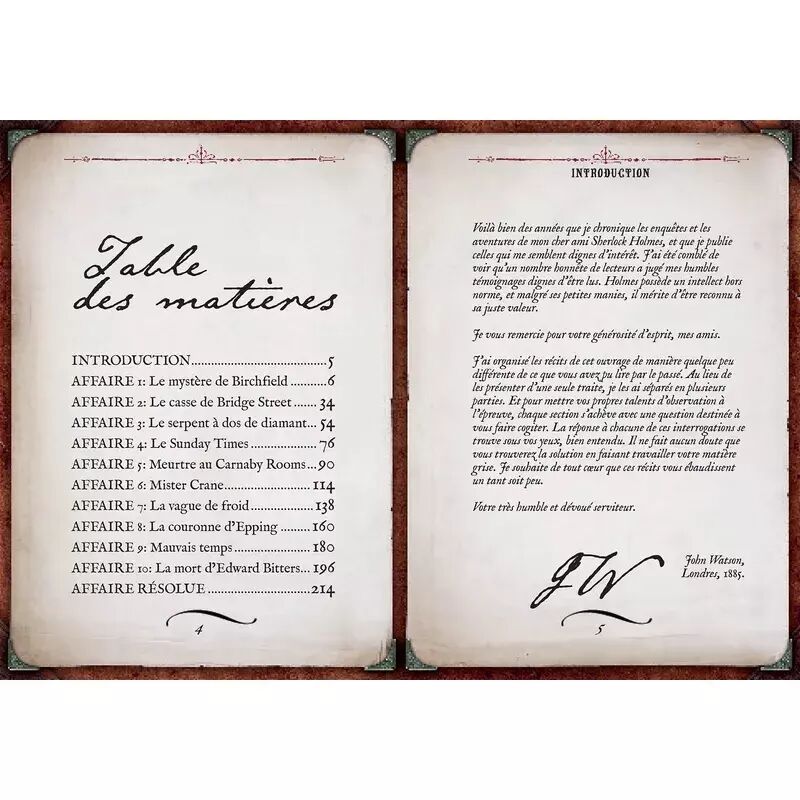 Table
des matières
INTRODUCTION..................................5
AFFAIRE 1: Le mystère de Birchfield ..........6
AFFAIRE 2: Le casse de Bridge Street ....... 34
AFFAIRE 3: Le serpent à dos de diamant... 54
AFFAIRE 4: Le Sunday Times ..................76
AFFAIRE 5: Meurtre au Carnaby Rooms...90
AFFAIRE 6: Mister Crane...................... 114
AFFAIRE 7: La vague de froid ................138
AFFAIRE 8: La couronne d'Epping ........160
AFFAIRE 9: Mauvais temps....................180
AFFAIRE 10: La mort d'Edward Bitters... 196
AFFAIRE RÉSOLUE ...........................214
4
INTRODUCTION
Voilà bien des années que je chronique les enquêtes et les
aventures de mon cher ami Sherlock Holmes, et que je publie
celles qui me semblent dignes d'intérêt. J'ai été comblé de
voir qu'un nombre honnête de lecteurs a jugé mes humbles
témoignages dignes d'être lus. Holmes possède un intellect hors
norme, et malgré ses petites manies, il mérite d'être reconnu à
sa juste valeur.
Je vous remercie pour votre générosité d'esprit, mes amis.
J'ai organisé les récits de cet ouvrage de manière quelque peu
différente de ce que vous avez pu lire par le passé. Au lieu de
les présenter d'une seule traite, je les ai séparés en plusieurs
parties. Et pour mettre vos propres talents d'observation à
l'épreuve, chaque section s'achève avec une question destinée à
vous faire cogiter. La réponse à chacune de ces interrogations se
trouve sous vos yeux, bien entendu. Il ne fait aucun doute que
vous trouverez la solution en faisant travailler votre matière
grise. Je souhaite de tout cœur que ces récits vous ébaudissent
un tant soit peu.
Votre très humble et dévoué serviteur.
JW
John Watson,
Londres, 1885.
5